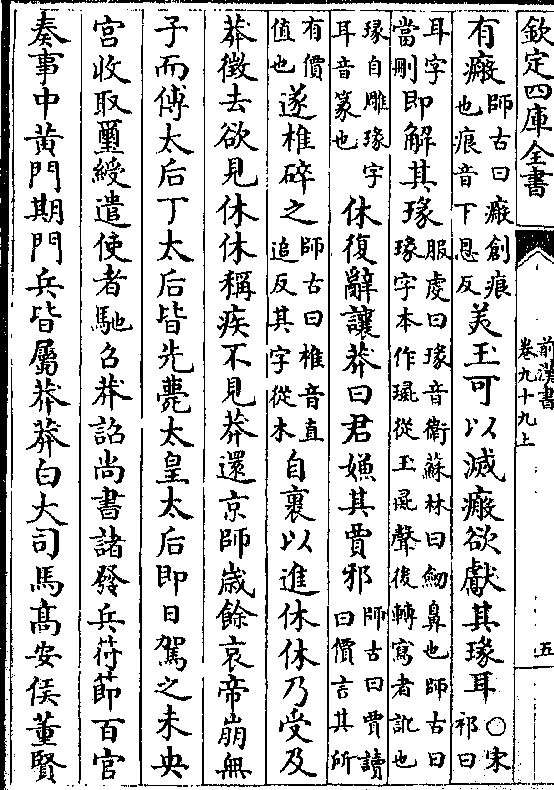 欽定四庫全書
前漢書
卷九十九上
五
有瘢師古曰瘢創痕也痕音下恩反美玉可以滅瘢欲獻其瑑耳○宋祁曰
耳字當刪即解其瑑服虔曰瑑音衛蘇林曰劒鼻也師古曰瑑字本作璏從玉彘聲後轉寫者訛也
瑑自雕瑑字耳音篆也休復辭讓莽曰君嫌其賈邪師古曰賈讀曰價言其所
有價值也遂椎碎之師古曰椎音直追反其字從木自裹以進休休乃受及
莽徵去欲見休休稱疾不見莽還京師歲餘哀帝崩無
子而傅太后丁太后皆先薨太皇太后即日駕之未央
宮收取璽綬遣使者馳召莽詔尚書諸發兵苻節百官
奏事中黃門期門兵皆屬莽莽白大司馬髙安侯董賢